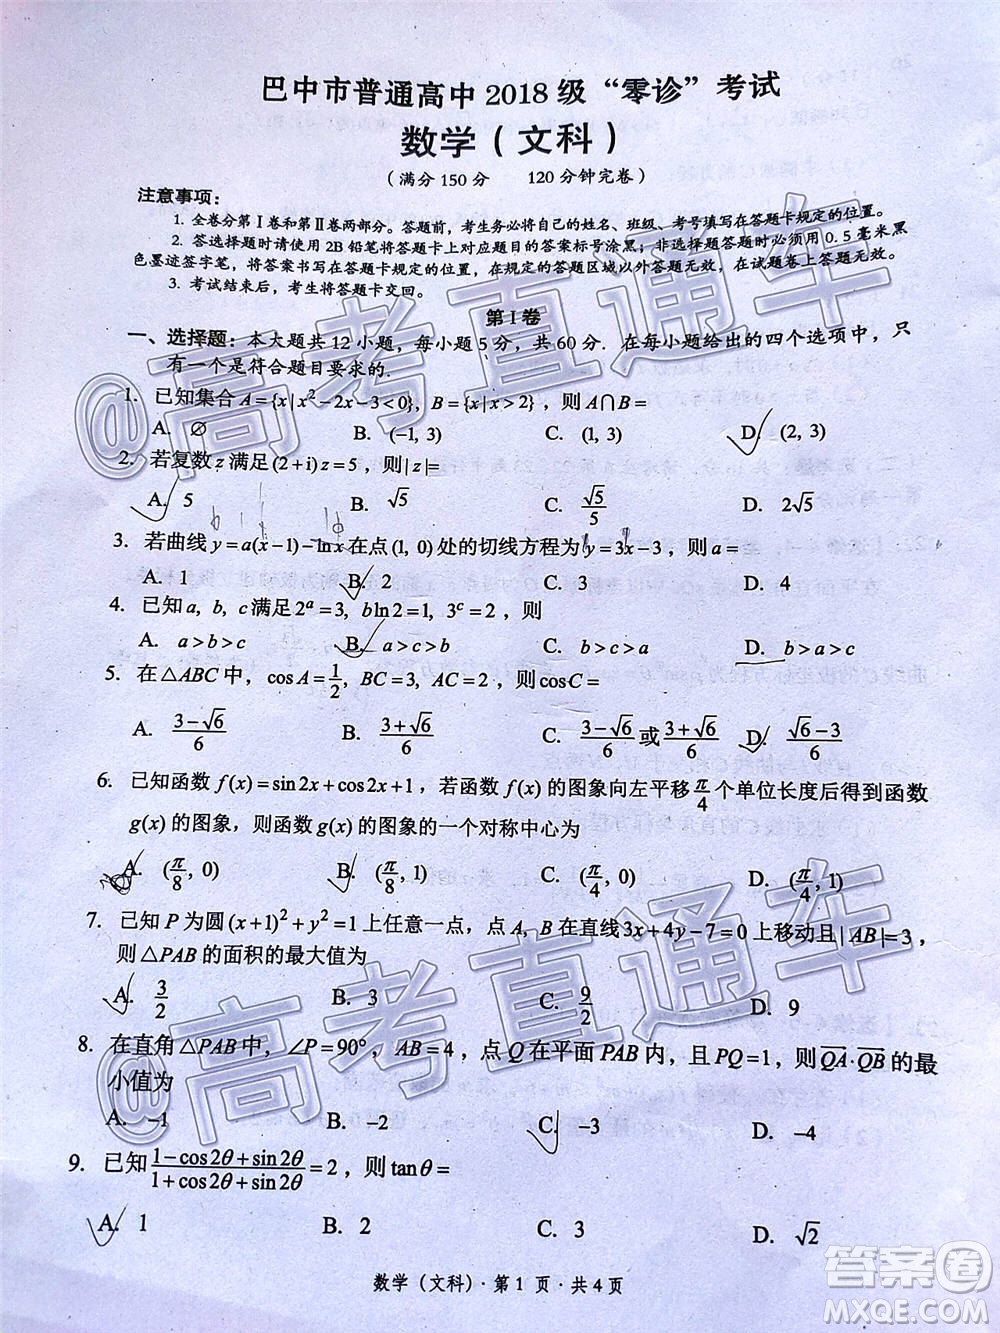 巴中市普通高中 2018 级 “零诊” 考试
数学（文科）
（满分 150 分　　120 分钟完卷）
注意事项：
1. 全卷分第Ⅰ卷和第Ⅱ卷两部分。答题前，考生务必将自己的姓名、班级、考号填写在答题卡规定的位置。
2. 答选择题时请使用 2B 铅笔将答题卡上对应题目的答案标号涂黑；非选择题答题时必须用 0.5 毫米黑
色墨迹签字笔，将答案书写在答题卡规定的位置，在规定的答题区域以外答题无效，在试题卷上答题无效。
3. 考试结束后，考生将答题卡交回。
第Ⅰ卷
一、选择题：本大题共 12 小题，每小题 5 分，共 60 分．在每小题给出的四个选项中，只
有一个是符合题目要求的．
1. 已知集合 A={x|x²−2x−3<0}, B={x|x>2}，则 A∩B=
A. ∅　B. (−1, 3)　C. (1, 3)　D. (2, 3)
2. 若复数 z 满足 (2+i)z=5，则 |z|=
A. 5　B. √5　C. √5/5　D. 2√5
3. 若曲线 y=a(x−1)−lnx 在点 (1, 0) 处的切线方程为 y=3x−3，则 a=
A. 1　B. 2　C. 3　D. 4
4. 已知 a, b, c 满足 2ᵃ=3, bln2=1, 3ᶜ=2，则
A. a>b>c　B. a>c>b　C. b>c>a　D. b>a>c
5. 在 △ABC 中，cosA=1/2, BC=3, AC=2，则 cosC=
A. (3−√6)/6　B. (3+√6)/6　C. (3−√6)/6 或 (3+√6)/6　D. (√6−3)/6
6. 已知函数 f(x)=sin2x+cos2x+1，若函数 f(x) 的图象向左平移 π/4 个单位长度后得到函数
g(x) 的图象，则函数 g(x) 的图象的一个对称中心为
A. (π/8, 0)　B. (π/8, 1)　C. (π/4, 0)　D. (π/4, 1)
7. 已知 P 为圆 (x+1)²+y²=1 上任意一点，点 A, B 在直线 3x+4y−7=0 上移动且 |AB|=3，
则 △PAB 的面积的最大值为
A. 3/2　B. 3　C. 9/2　D. 9
8. 在直角 △PAB 中，∠P=90°，AB=4，点 Q 在平面 PAB 内，且 PQ=1，则 QA·QB 的最
小值为
A. −1　B. −2　C. −3　D. −4
9. 已知 (1−cos2θ+sin2θ)/(1+cos2θ+sin2θ)=2，则 tanθ=
A. 1　B. 2　C. 3　D. √2
数学（文科）· 第 1 页 · 共 4 页
@高考直通车
@高考直通车
答案圈
MXQE.COM